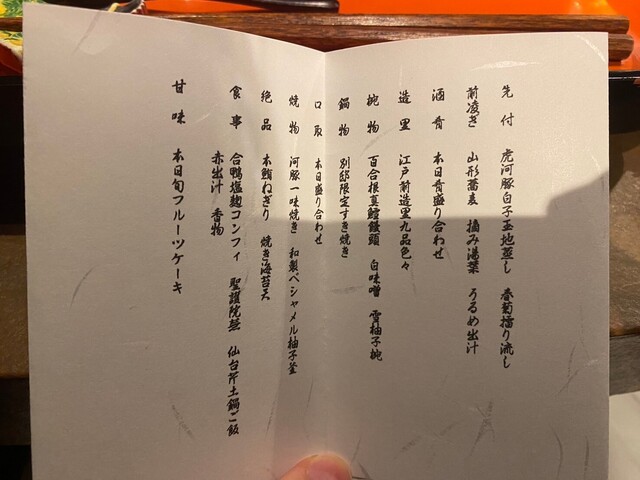 先付 虎河豚白子玉地蒸し 春菊擂り流し
前凌ぎ 山形蕎麦 摘み湯葉 うるめ出汁
酒肴 本日肴盛り合わせ
造里 江戸前造里九品色々
椀物 百合根真鱈饅頭 白味噌 雪柚子椀
鍋物 別邸限定すき焼き
口取 本日盛り合わせ
焼物 河豚一味焼き 和製ベシャメル柚子釜
絶品 本鮪ねぎり 焼き海苔天
食事 合鴨塩麹コンフィ 聖護院蕪 仙台芹土鍋ご飯
赤出汁 香物
甘味 本日旬フルーツケーキ